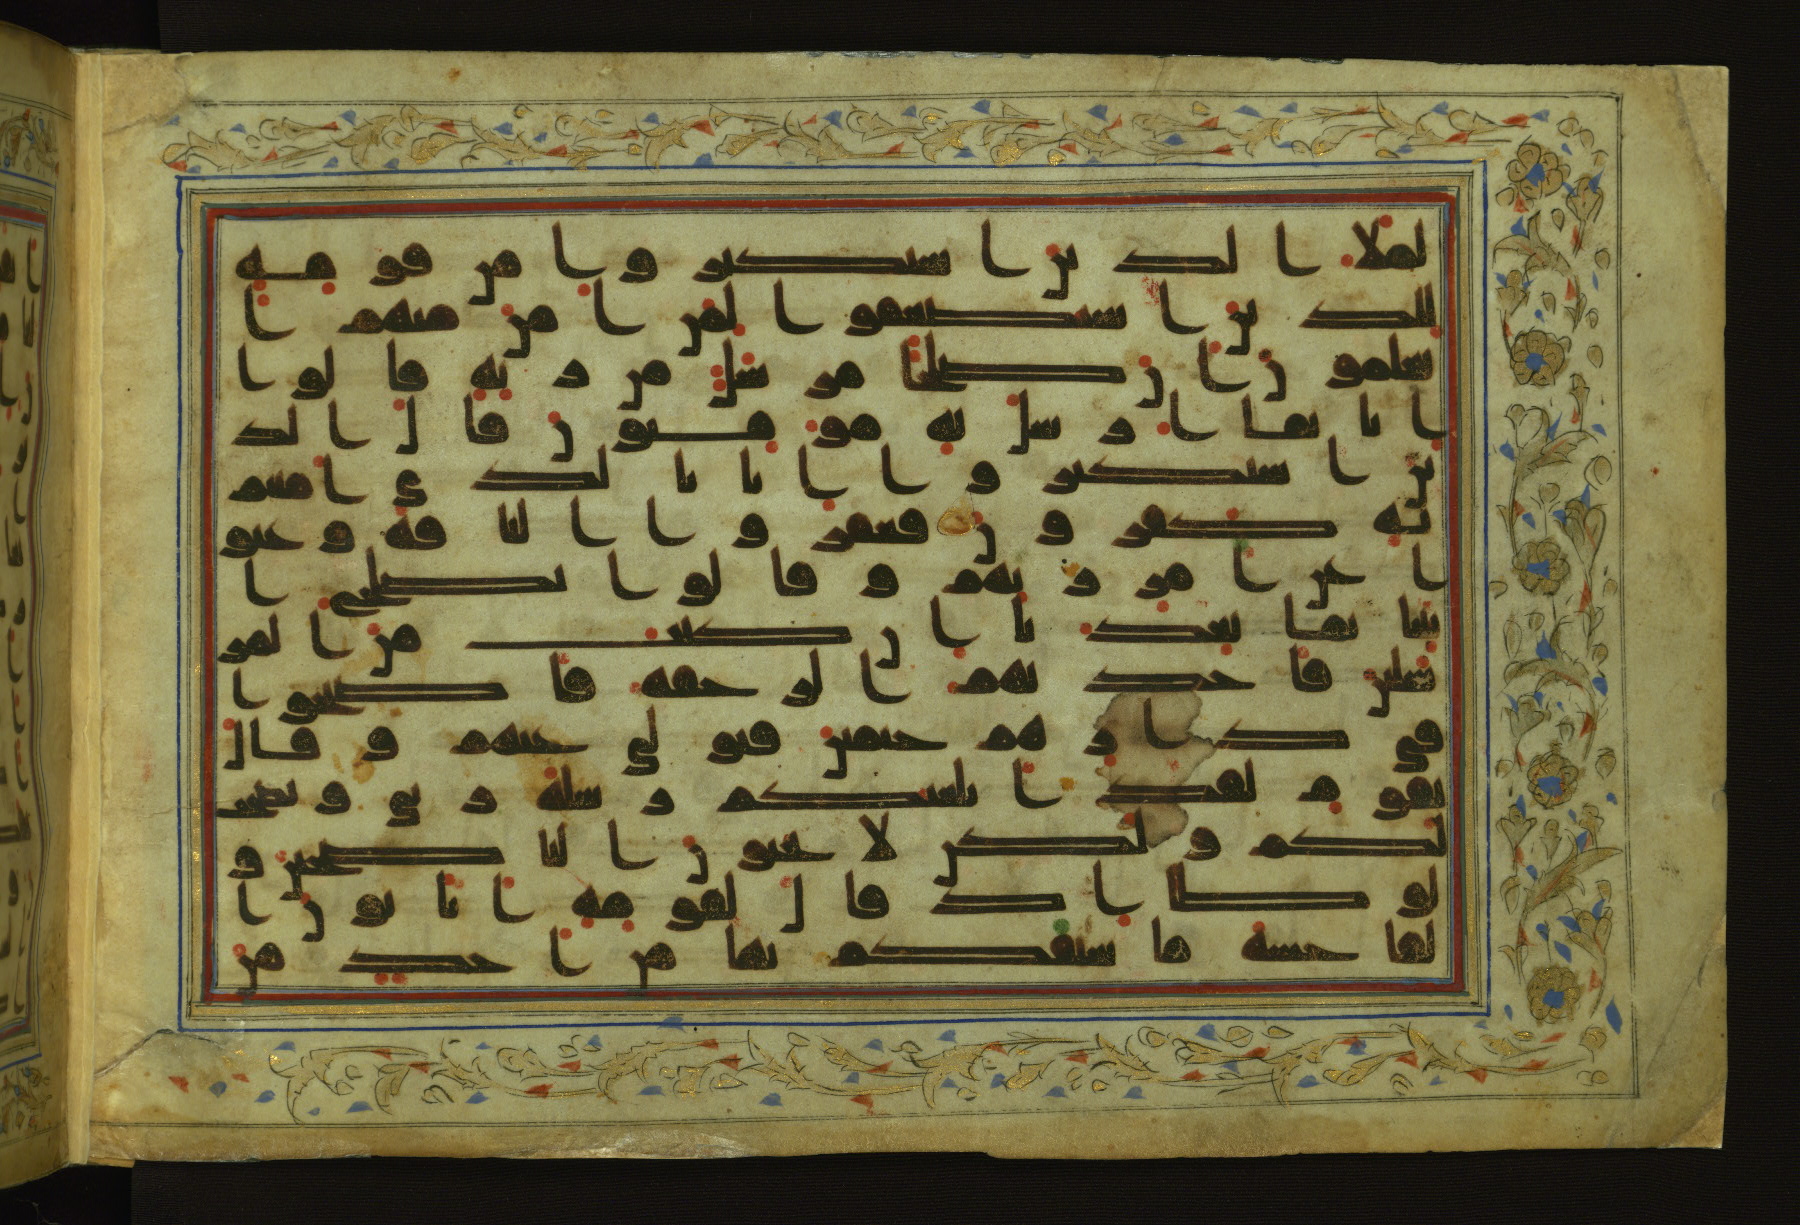 لملا الذين استكبروا من قومه
للذين استضعفوا لمن امن منهم ا
تعلمون ان صلحا مرسل من ربه قالوا
انا بما ارسل به مومنون قال الذ
ين استكبروا انا بالذي امنتم
به كفرون فعقروا الناقه وعتو
ا عن امر ربهم وقالوا يصلح ا
ئتنا بما تعدنا ان كنت من المر
سلين فاخذتهم الرجفه فاصبحوا
في دارهم جثمين فتولى عنهم وقال
يقوم لقد ابلغتكم رسله ربي ونصحت
لكم ولكن لا تحبون النصحين و
لوطا اذ قال لقومه اتاتون ا
لفحشه ما سبقكم بها من احد من